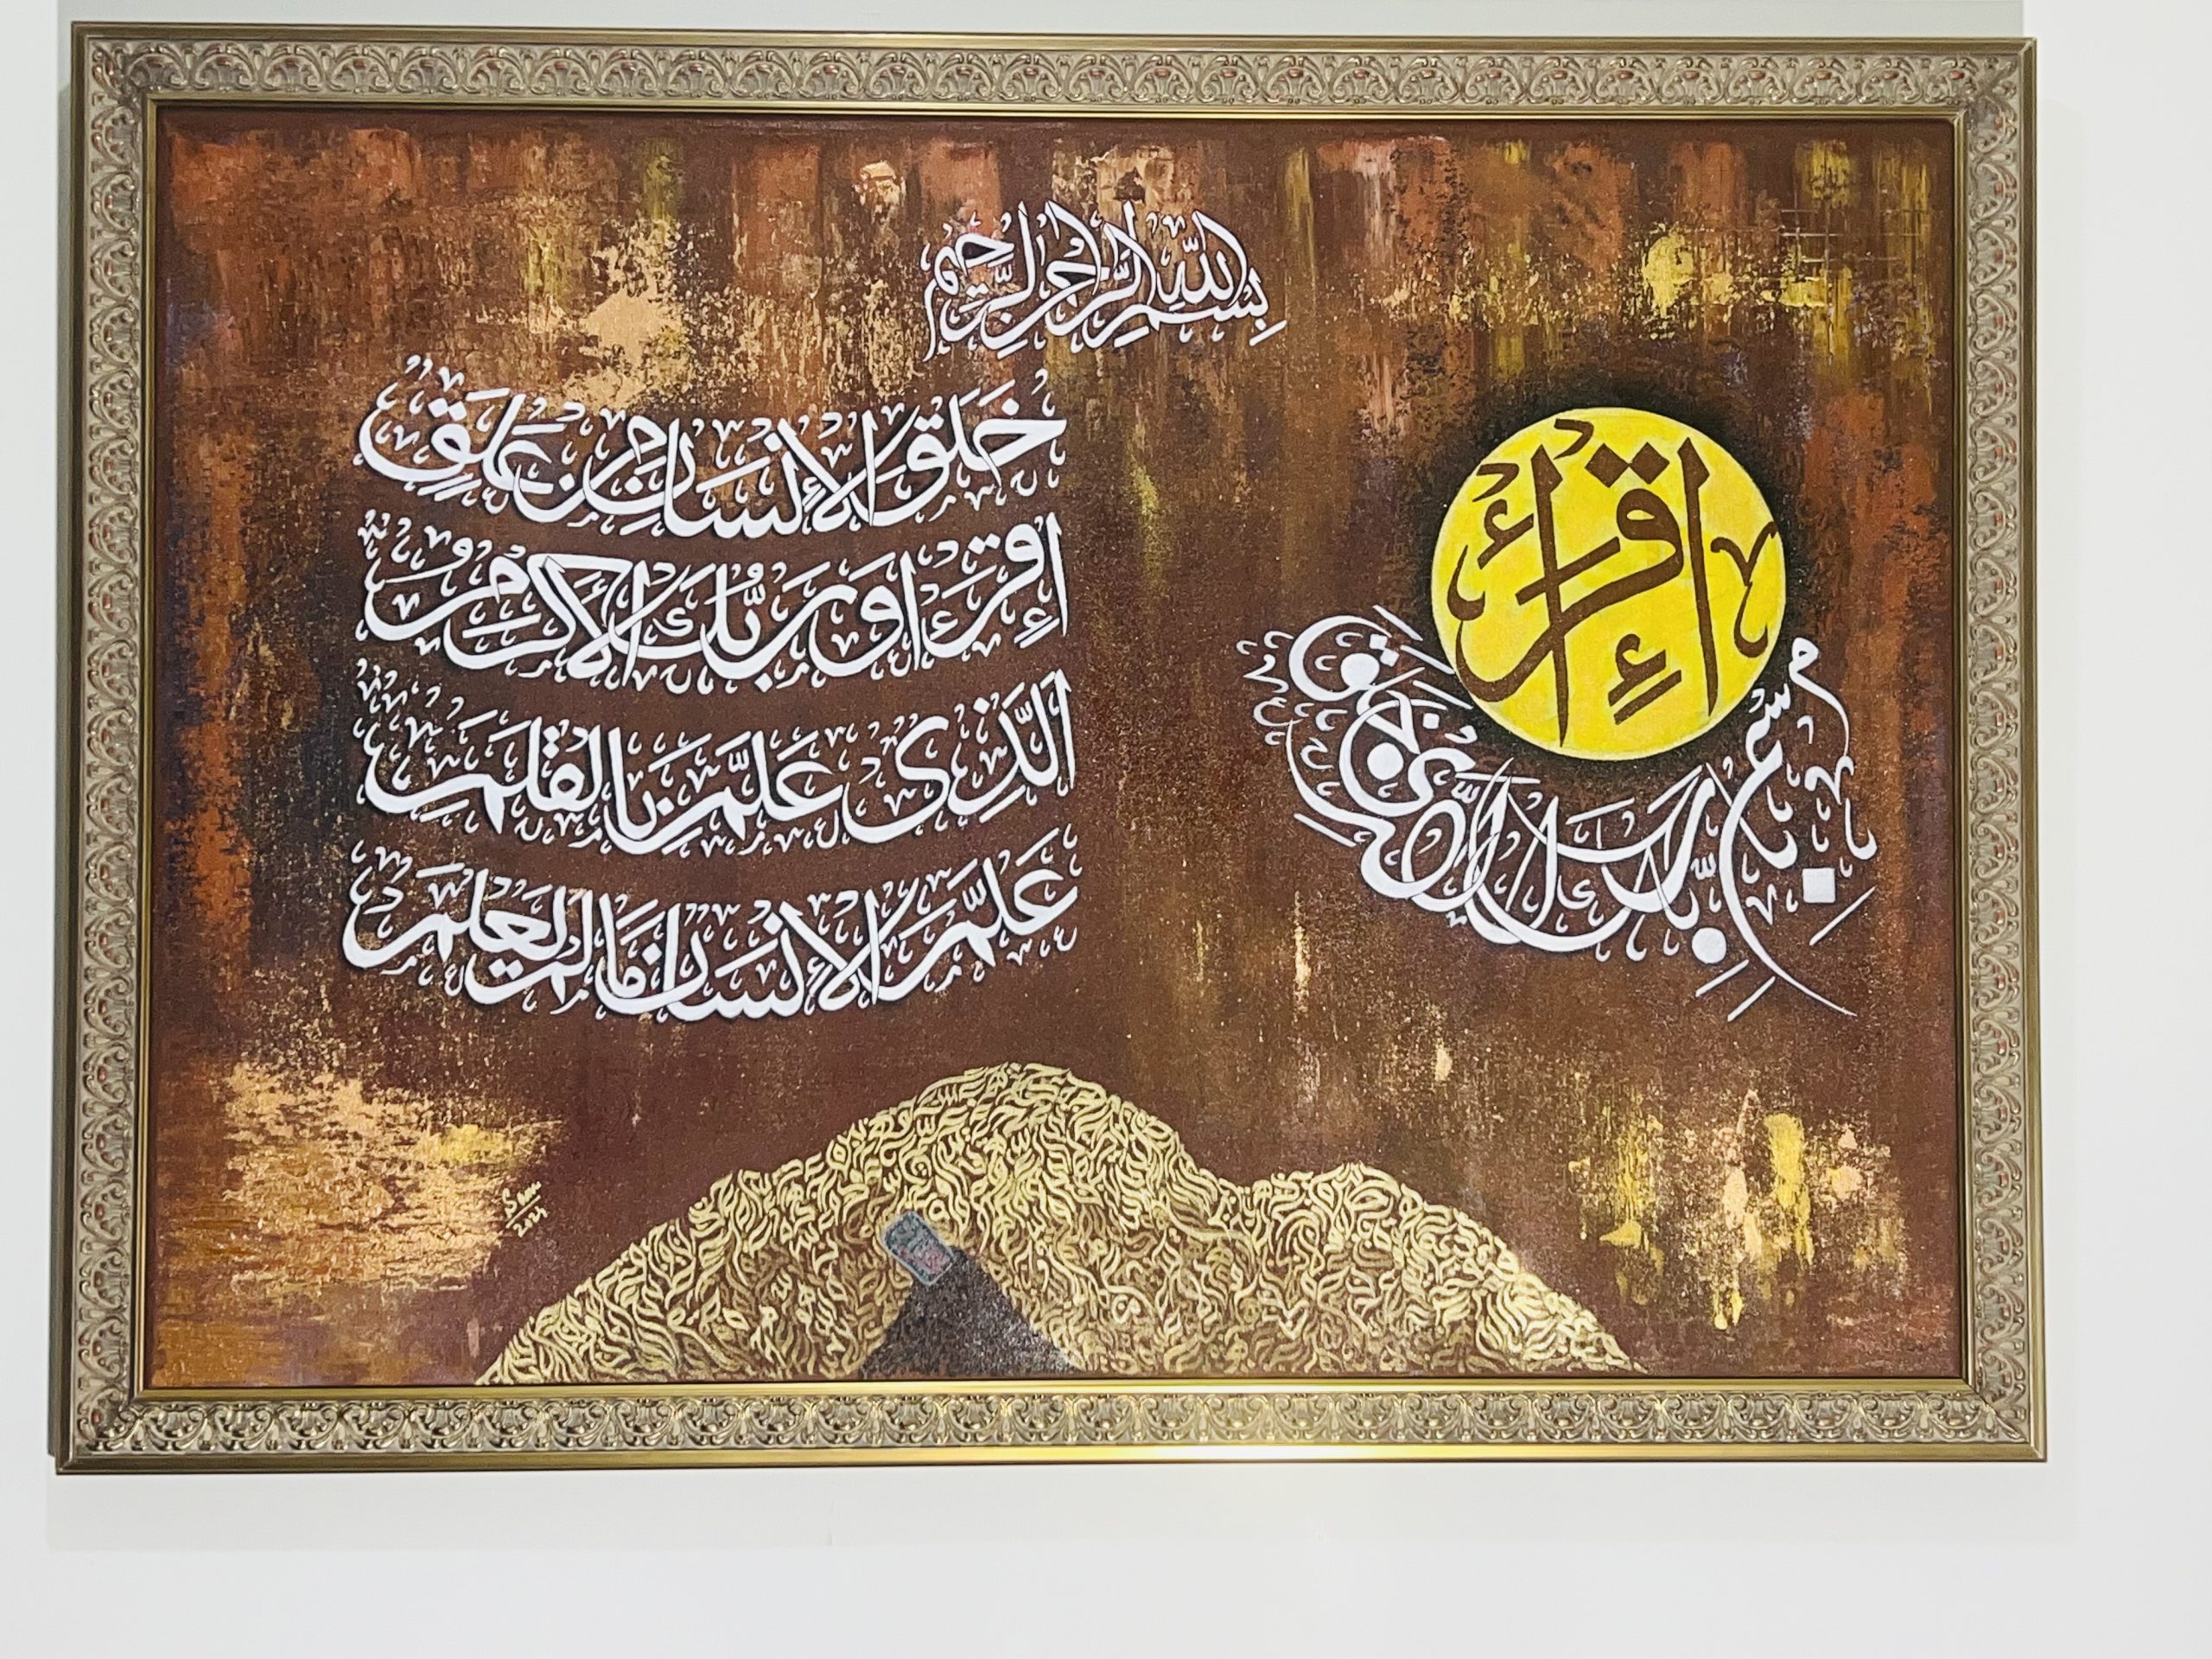 بِسْمِ اللّٰهِ الرَّحْمٰنِ الرَّحِيْمِ
إِقْرَأْ
بِاسْمِ رَبِّكَ الَّذِي خَلَقَ
خَلَقَ الْإِنْسَانَ مِنْ عَلَقٍ
إِقْرَأْ وَرَبُّكَ الْأَكْرَمُ
الَّذِى عَلَّمَ بِالْقَلَمِ
عَلَّمَ الْإِنْسَانَ مَا لَمْ يَعْلَمْ
2024